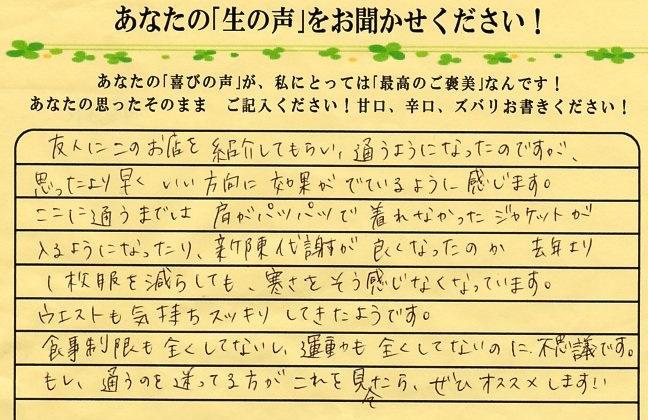 あなたの「生の声」をお聞かせください！
あなたの「喜びの声」が、私にとっては「最高のご褒美」なんです！
あなたの思ったそのまま　ご記入ください！甘口、辛口、ズバリお書きください！
友人にこのお店を 紹介してもらい、通うようになったのですが、
思ったより早く いい方向に 効果が でているように 感じます。
ここに通うまでは 肩がパツパツで 着れなかった ジャケットが
入るようになったり、新陳代謝が 良くなったのか 去年より
1枚服を減らしても、寒さをそう感じなくなっています。
ウエストも気持ちスッキリ してきたようです。
食事制限も全くしてないし、運動も全くしてないのに、不思議です。
もし、通うのを迷ってる方が これを見たら、ぜひオススメします!!